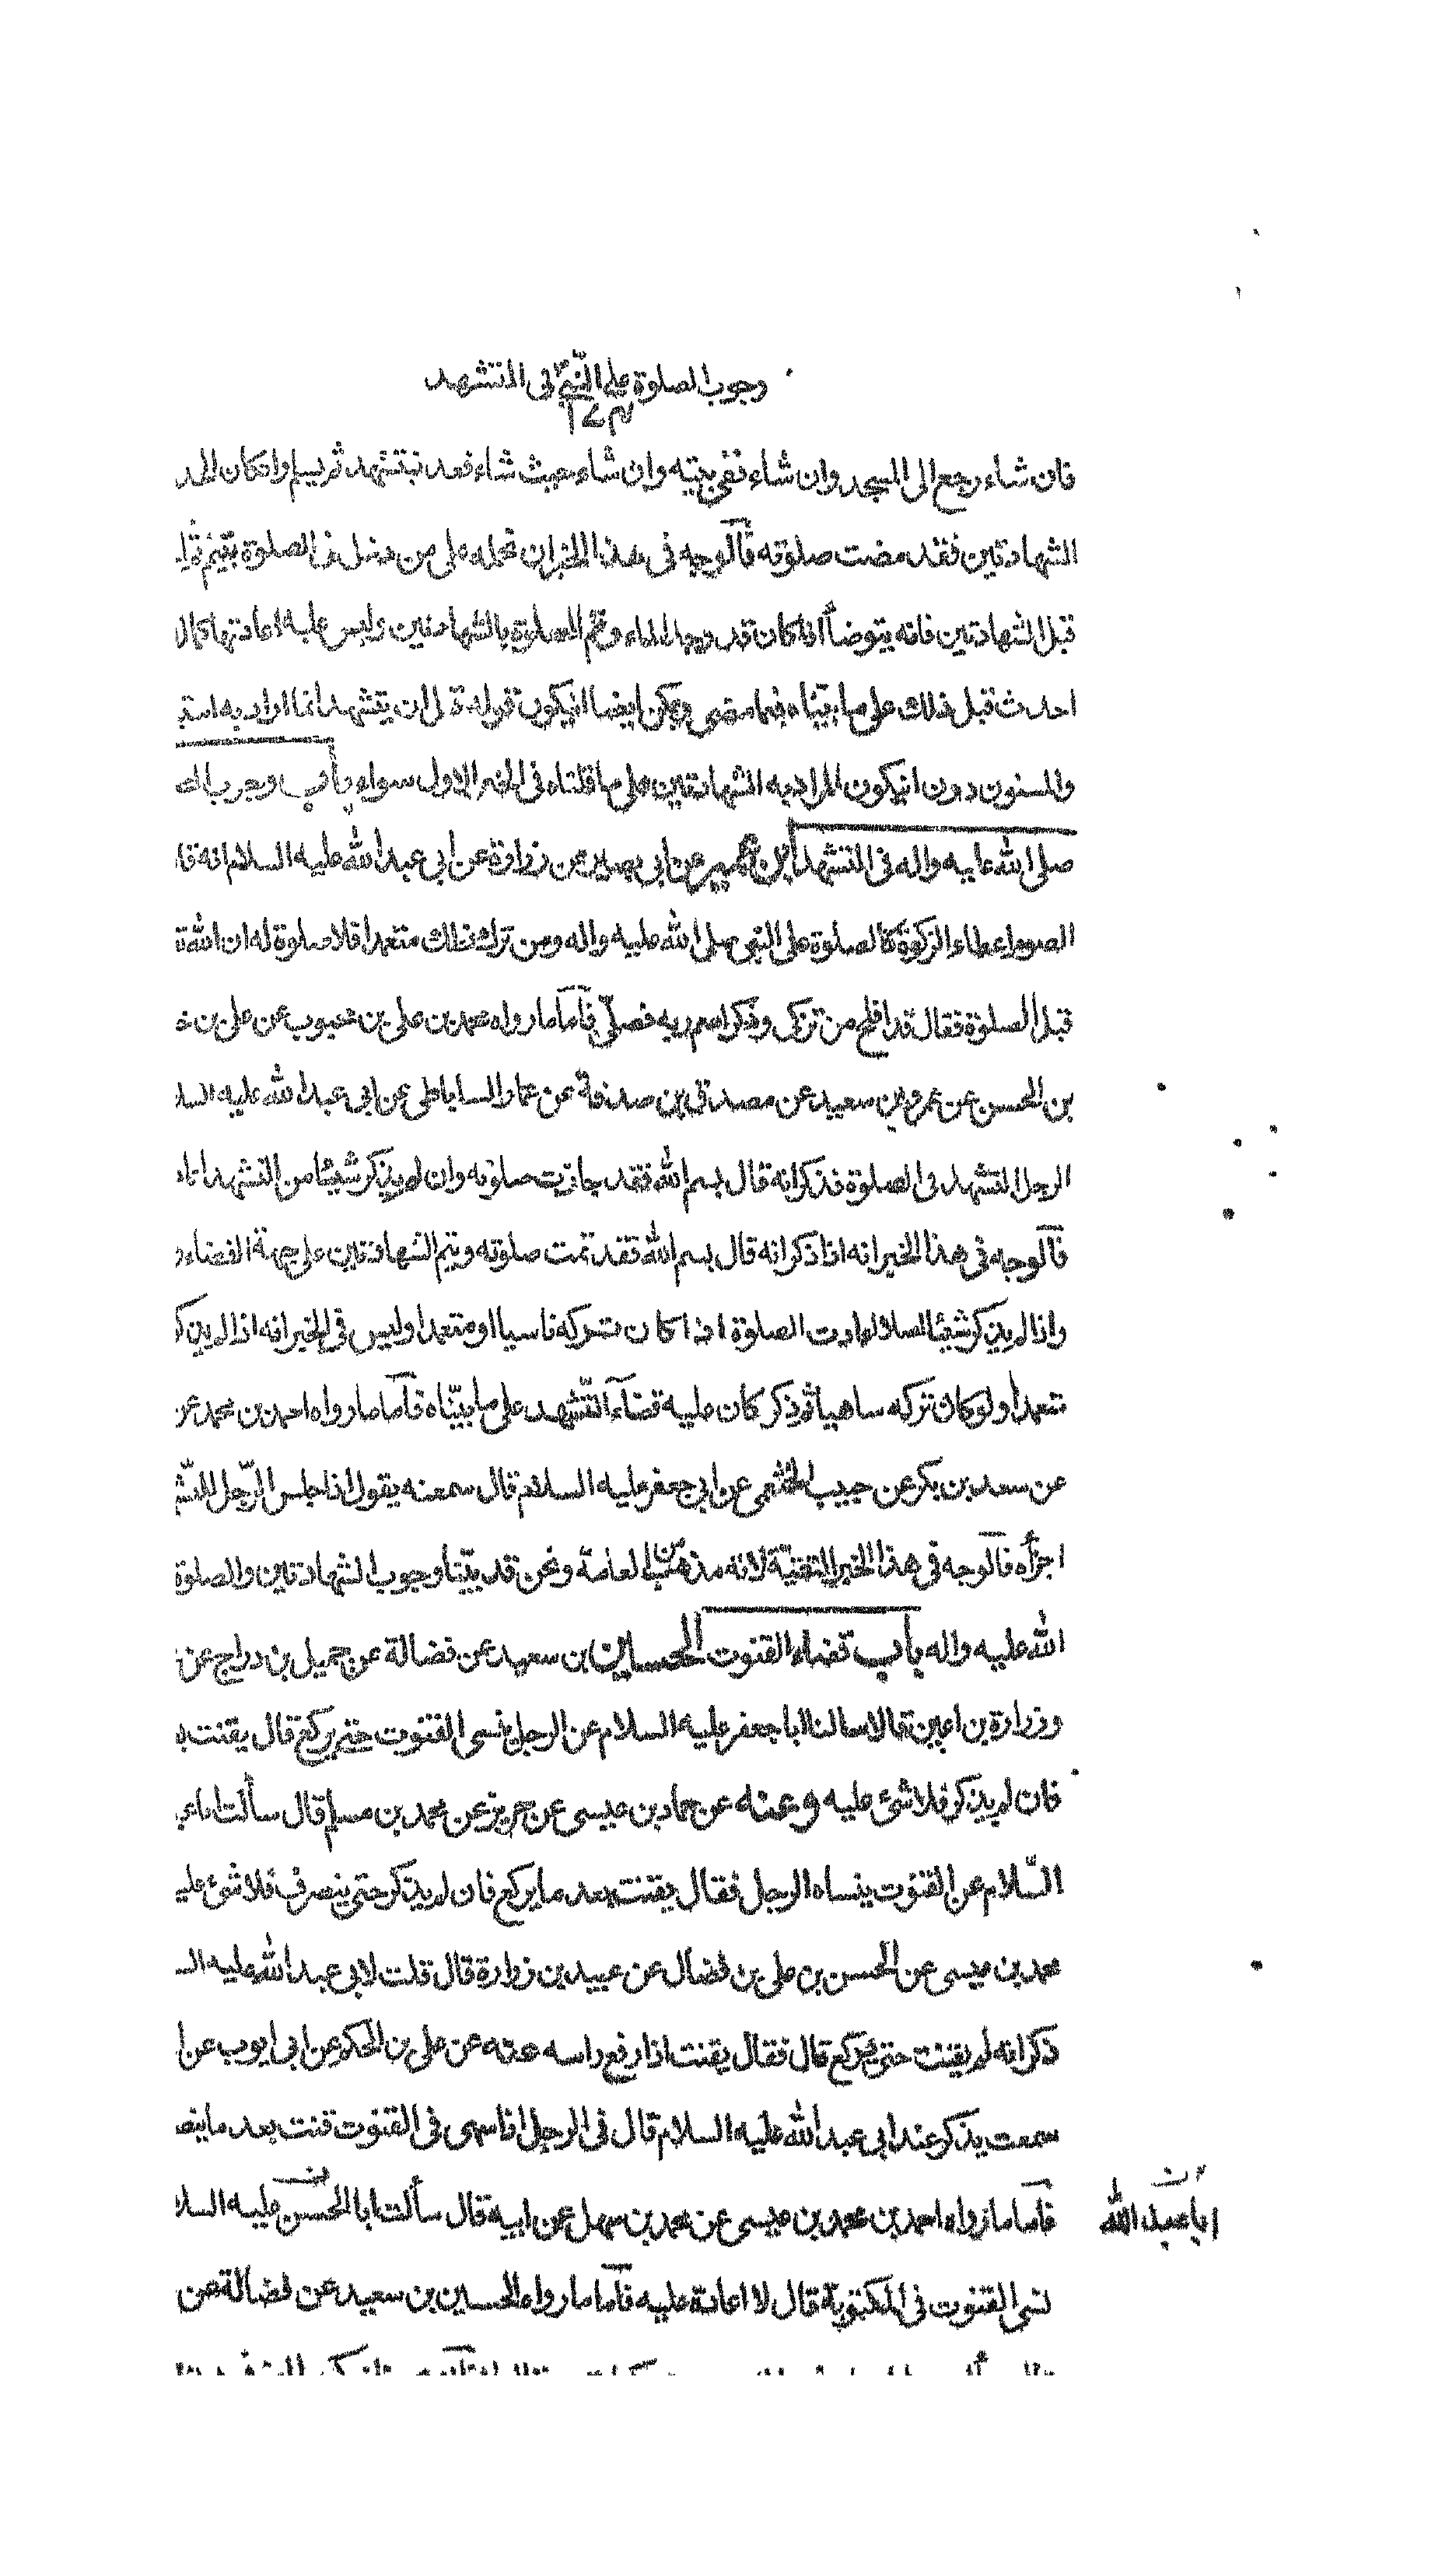 وجوب الصلوة على النبي في التشهد
فان شاء رجع الى المسجد وان شاء ففي بيته وان شاء حيث شاء قعد فيتشهد ثم يسلم وان كان الحد
الشهادتين فقد مضت صلوته فالوجه في هذا الخبر ان نحمله على من دخل في الصلوة بتيمم ثم
قبل الشهادتين فانه يتوضأ اذا كان قد وجد الماء ويتم الصلوة بالشهادتين وليس عليه اعادتها كما ان
احدث قبل ذلك على ما بيناه فيما مضى ويمكن ايضا ان يكون قوله قبل ان يتشهد انما اراد به
والمسنون دون ان يكون المراد به الشهادتين على ما قلناه في الخبر الاول سواء باب وجوب
صلى الله عليه واله في التشهد ابن ابي عمير عن ابي بصير عن زرارة عن ابي عبد الله عليه السلام انه
الصوم اعطاء الزكوة كالصلوة على النبي صلى الله عليه واله ومن ترك ذلك متعمدا فلا صلوة له ان الله
قبل الصلوة فقال قد افلح من تزكى وذكر اسم ربه فصلى فاما ما رواه محمد بن علي بن محبوب عن علي بن
بن الحسن عن عمرو بن سعيد عن مصدق بن صدقة عن عمار الساباطي عن ابي عبد الله عليه
الرجل التشهد في الصلوة فذكر انه قال بسم الله فقد جازت صلوته وان لم يذكر شيئا من التشهد
فالوجه في هذا الخبر انه اذا ذكر انه قال بسم الله فقد تمت صلوته ويتم الشهادتين على جهة القضاء
واذا لم يذكر شيئا اصلا اعادت الصلوة اذا كان تركه ناسيا او متعمدا وليس في الخبر انه اذا لم يذكر
متعمدا ولو كان تركه ساهيا ثم ذكر كان عليه قضاء التشهد على ما بيناه فاما ما رواه احمد بن محمد عن
عن سعد بن بكر عن حبيب الخثعمي عن ابي جعفر عليه السلام قال سمعته يقول اذا جلس الرجل
اجزأه فالوجه في هذا الخبر التقية لانه مذهب العامة ونحن قد بينا وجوب الشهادتين والصلوة
الله عليه واله باب قضاء القنوت الحسين بن سعيد عن فضالة عن جميل بن دراج عن
وزرارة بن اعين قالا سالنا ابا جعفر عليه السلام عن الرجل نسي القنوت حتى يركع قال يقنت
فان لم يذكر فلا شئ عليه وعنه عن حماد بن عيسى عن حريز عن محمد بن مسلم قال سألت
السلام عن القنوت ينساه الرجل فقال يقنت بعد ما يركع فان لم يذكر حتى ينصرف فلا شئ عليه
محمد بن عيسى عن الحسن بن علي بن فضال عن عبيد بن زرارة قال قلت لابي عبد الله عليه
ذكر انه لم يقنت حتى يركع قال فقال يقنت اذا رفع راسه عنه عن علي بن الحكم عن ابي ايوب عن
سمعت يذكر عند ابي عبد الله عليه السلام قال في الرجل اذا سهى في القنوت قنت بعد ما
فاما ما رواه احمد بن محمد بن عيسى عن محمد بن سهل عن ابيه قال سألت ابا الحسن عليه
ابا عبد الله
نسي القنوت في المكتوبة قال لا اعادة عليه فاما ما رواه الحسين بن سعيد عن فضالة عن